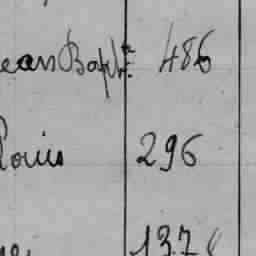 ean Bapte. 486
Louis 296
137